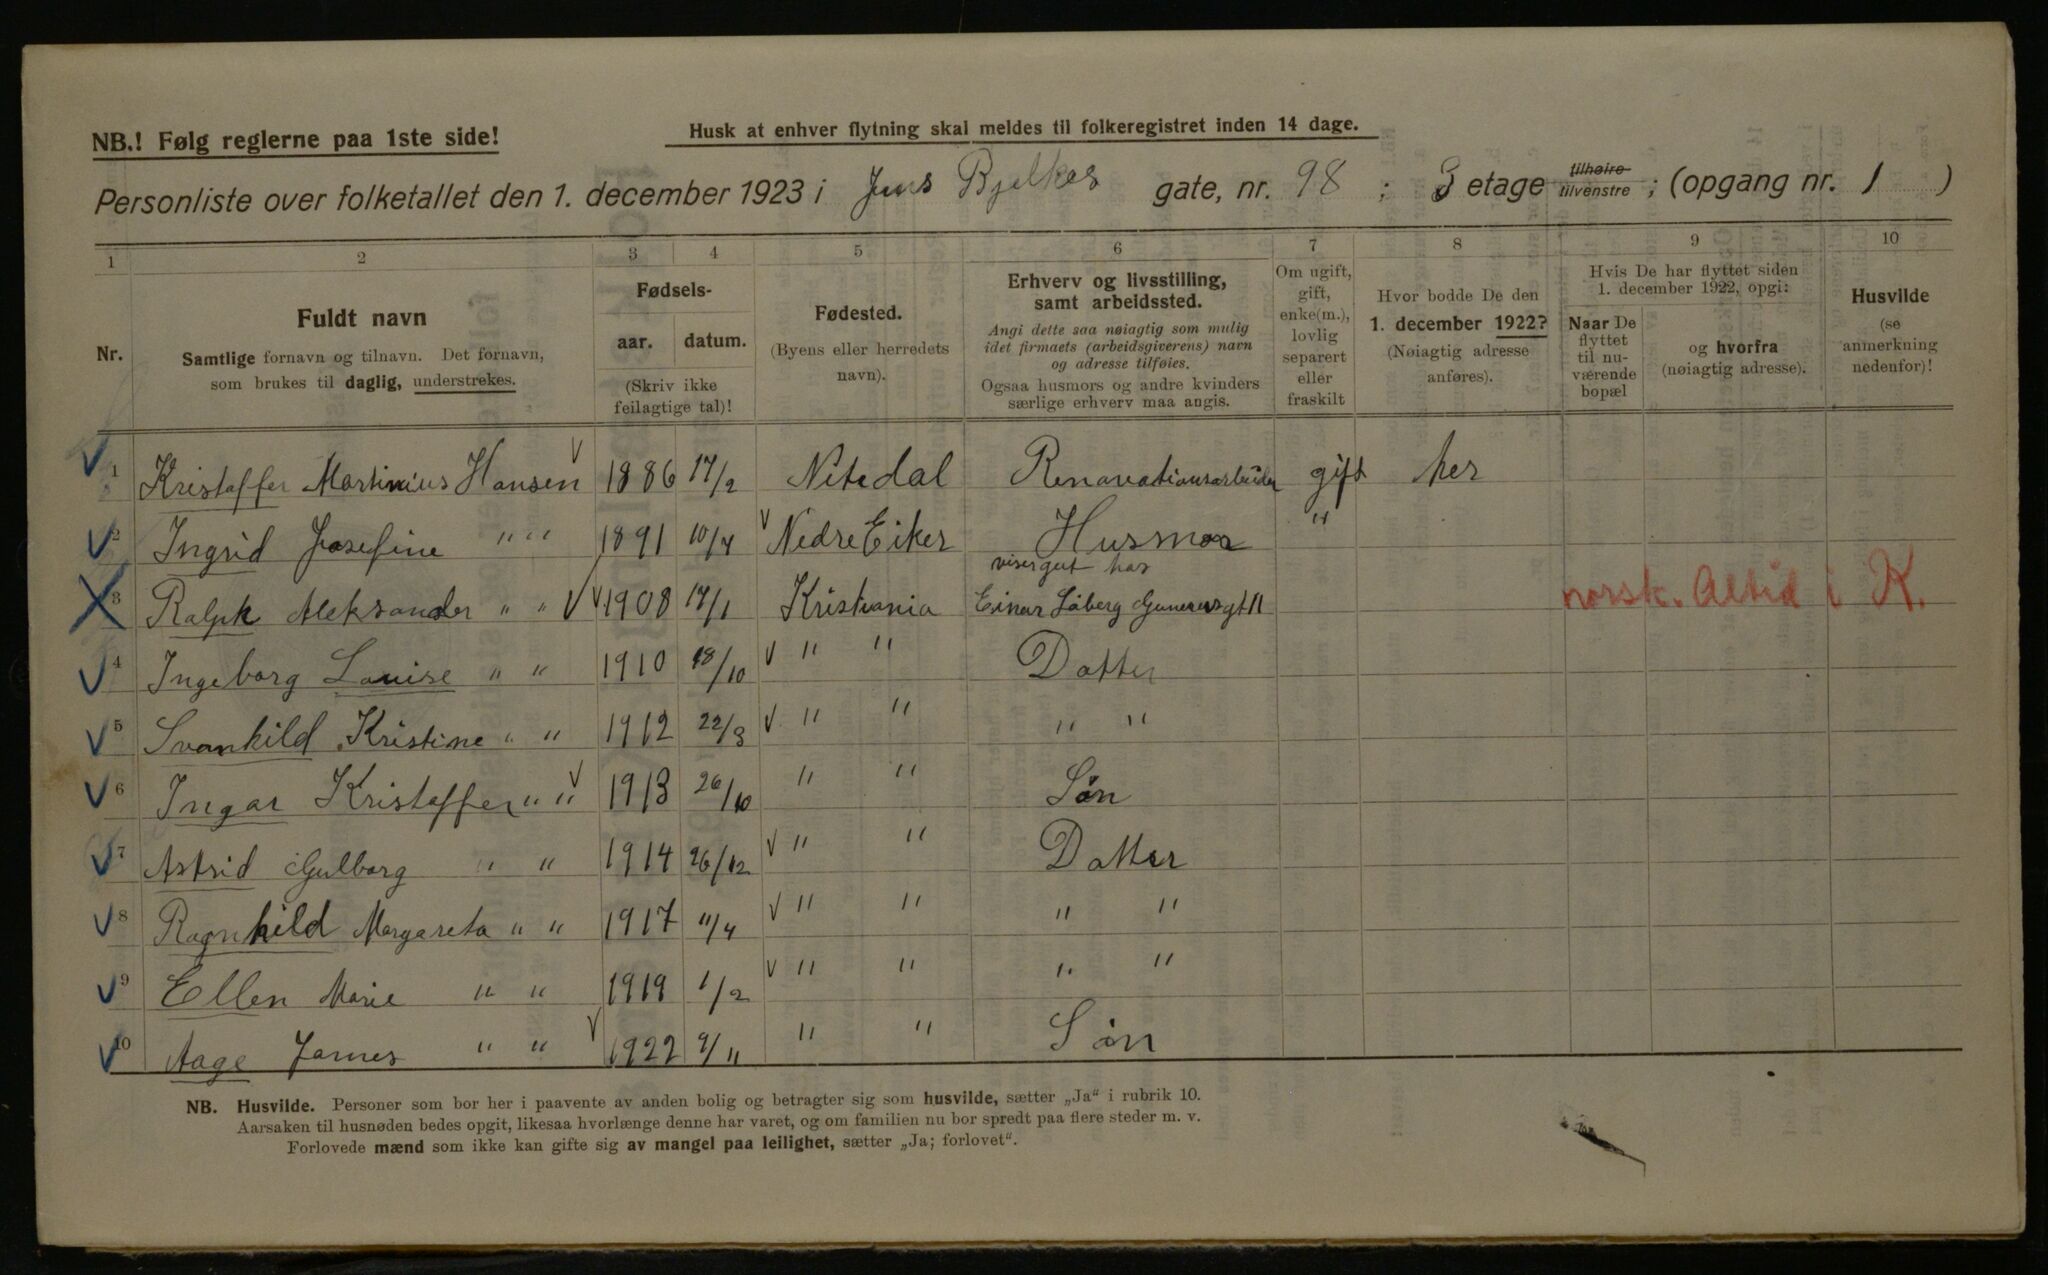 NB.! Følg reglerne paa 1ste side!
Husk at enhver flytning skal meldes til folkeregistret inden 14 dage.
Personliste over folketallet den 1. december 1923 i Jens Bjelkes gate, nr. 98 ; 3 etage tilhøire tilvenstre ; (opgang nr. 1 )
1 2 3 4 5 6 7 8 9 10
Nr.
Fuldt navn
Samtlige fornavn og tilnavn. Det fornavn,
som brukes til daglig, understrekes.
Fødsels-
aar. datum.
(Skriv ikke
feilagtige tal)!
Fødested.
(Byens eller herredets
navn).
Erhverv og livsstilling,
samt arbeidssted.
Angi dette saa nøiagtig som mulig
idet firmaets (arbeidsgiverens) navn
og adresse tilføies.
Ogsaa husmors og andre kvinders
særlige erhverv maa angis.
Om ugift,
gift,
enke(m.),
lovlig
separert
eller
fraskilt
Hvor bodde De den
1. december 1922?
(Nøiagtig adresse
anføres).
Hvis De har flyttet siden
1. december 1922, opgi:
Naar De
flyttet
til nu-
værende
bopæl
og hvorfra
(nøiagtig adresse).
Husvilde
(se
anmerkning
nedenfor)!
1 Kristoffer Martinius Hansen 1886 17/2 Nitedal Renovationsarbeider gift her
2 Ingrid Josefine " " 1891 10/4 Nedre Eiker Husmor "
visergut hos
3 Ralph Aleksander " " 1908 17/1 Kristiania Einar Løberg Gunerusgt 11 norsk. Altid i K.
4 Ingeborg Louise " " 1910 18/10 " " Datter
5 Svanhild Kristine " " 1912 22/3 " " " "
6 Ingar Kristoffer " " 1913 26/10 " " Søn
7 Astrid Gulborg " " 1914 26/12 " " Datter
8 Ragnhild Margareta " " 1917 11/4 " " " "
9 Ellen Marie " " 1919 1/2 " " " "
10 Aage James " " 1922 9/11 " " Søn
NB. Husvilde. Personer som bor her i paavente av anden bolig og betragter sig som husvilde, sætter „Ja“ i rubrik 10.
Aarsaken til husnøden bedes opgit, likesaa hvorlænge denne har varet, og om familien nu bor spredt paa flere steder m. v.
Forlovede mænd som ikke kan gifte sig av mangel paa leilighet, sætter „Ja; forlovet“.